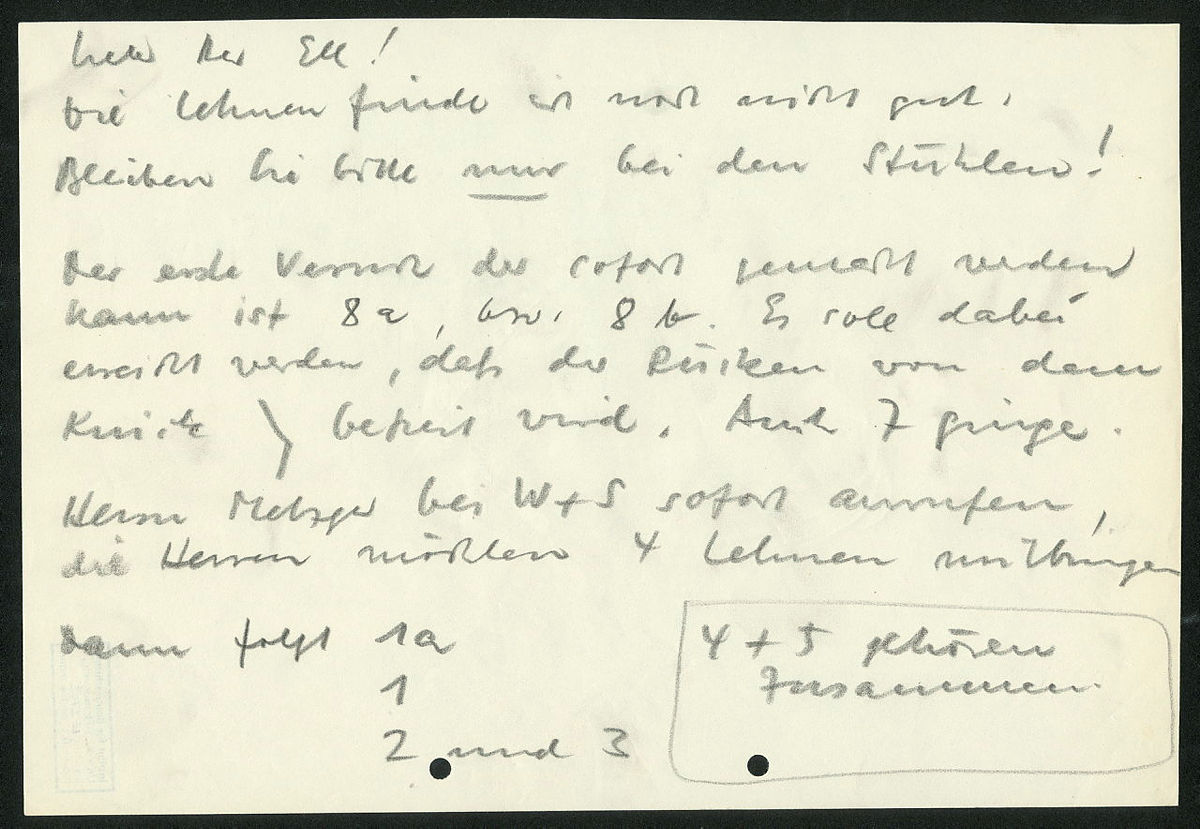 Lieber Der Ell!
Die Lehnen finde ich noch nicht gut.
Bleiben Sie bitte nur bei den Stühlen!
Der erste Versuch der sofort gemacht werden
kann ist 8a, bzw. 8b. Es soll dabei
erreicht werden, daß der Rücken von dem
Knick } befreit wird. Auch 7 ginge.
Herrn Metzger bei W+S sofort anrufen,
die Herren möchten 4 Lehnen mitbringen
Dann folgt 1a
1
2 und 3
4 + 5 gehören
zusammen.